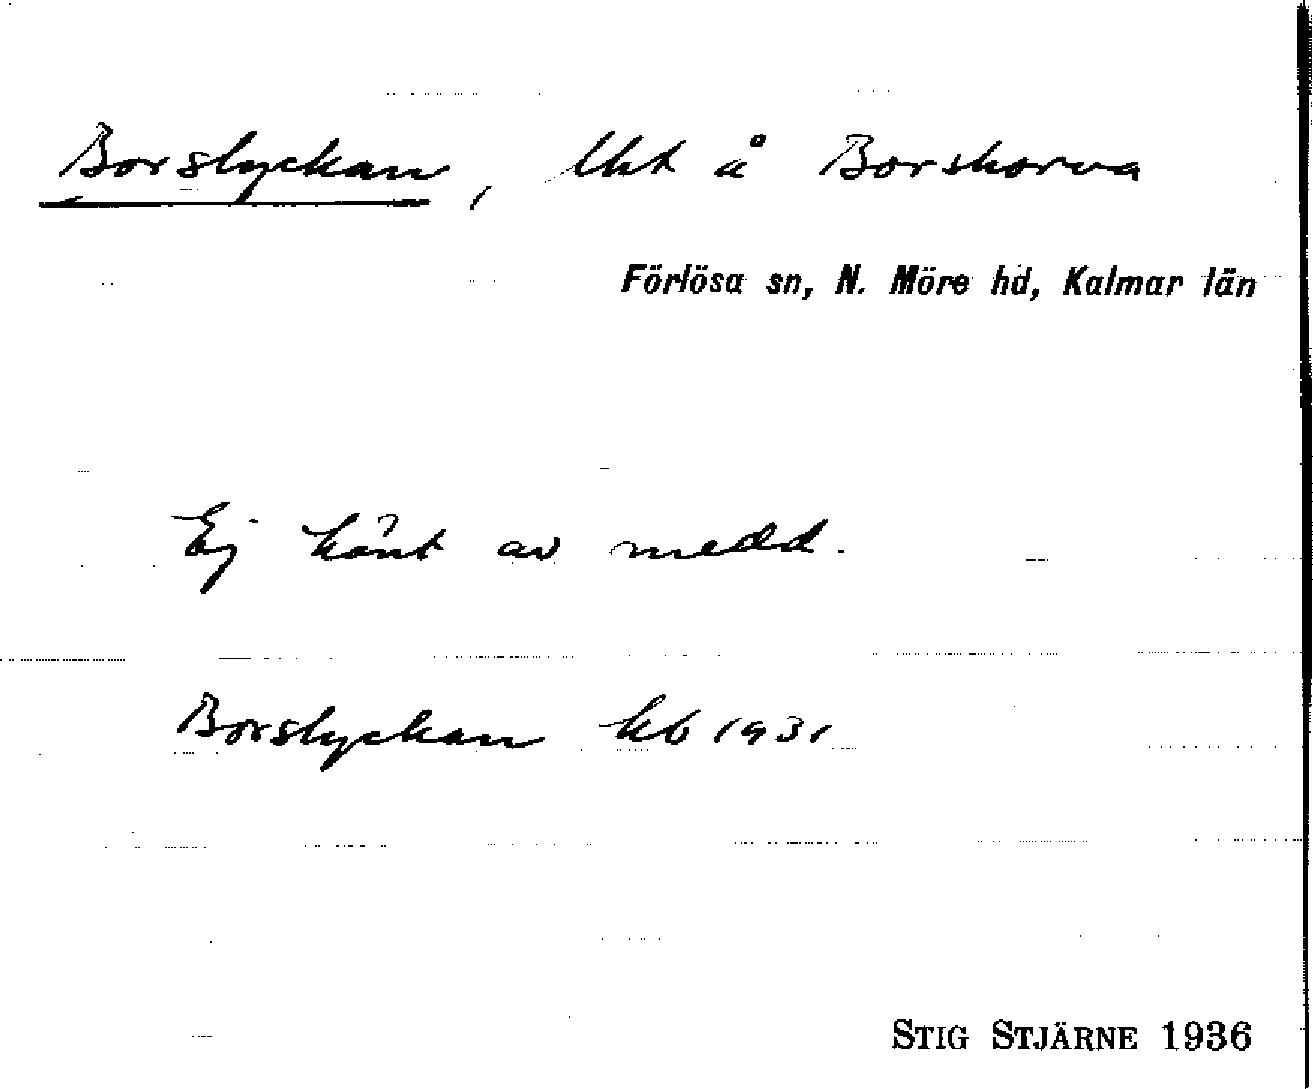 Borslyckan, lht å Borskorva
Förlösa sn, N. Möre hd, Kalmar län
Ej känt av medd.
Borslyckan kb 1931
STIG STJÄRNE 1936